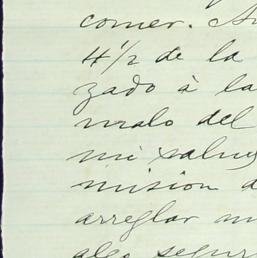 comer. 
4 1/2 de la
zado à la
malo del
mi salu
mision d
arreglar
algo segur